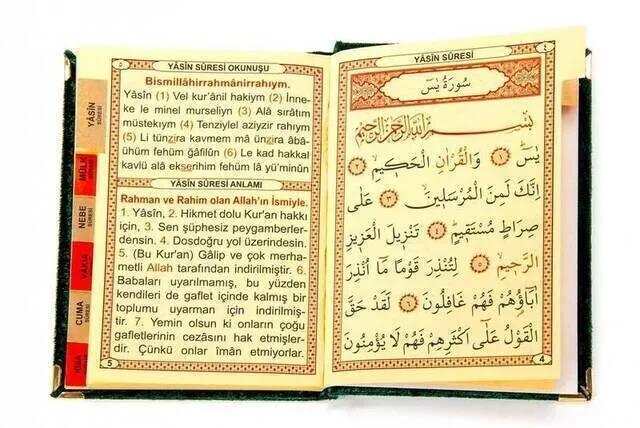 YÂSİN SÛRESİ
٤
سُورَةُ يٰسٓ
بِسْمِ اللّٰهِ الرَّحْمٰنِ الرَّحِيمِ
يٰسٓ ﴿١﴾ وَالْقُرْاٰنِ الْحَكِيمِ ﴿٢﴾
اِنَّكَ لَمِنَ الْمُرْسَلِينَ ﴿٣﴾ عَلٰى
صِرَاطٍ مُسْتَقِيمٍ ﴿٤﴾ تَنْزِيلَ الْعَزِيزِ
الرَّحِيمِ ﴿٥﴾ لِتُنْذِرَ قَوْمًا مَٓا اُنْذِرَ
اٰبَٓاؤُهُمْ فَهُمْ غَافِلُونَ ﴿٦﴾ لَقَدْ حَقَّ
الْقَوْلُ عَلٰٓى اَكْثَرِهِمْ فَهُمْ لَا يُؤْمِنُونَ
4
٥
YÂSİN SÛRESİ OKUNUŞU
Bismillâhirrahmânirrahıym.
Yâsîn (1) Vel kur'ânil hakiym (2) İnne-
ke le minel murseliyn (3) Alâ sıratım
müstekıym (4) Tenziylel aziyzir rahıym
(5) Li tünzira kavmem mâ ünzira âbâ-
ühüm fehüm ğâfilûn (6) Le kad hakkal
kavlü alâ ekserihim fehüm lâ yü'minûn
YÂSİN SÛRESİ ANLAMI
Rahman ve Rahim olan Allah'ın İsmiyle.
1. Yâsîn, 2. Hikmet dolu Kur'an hakkı
için, 3. Sen şüphesiz peygamberler-
densin. 4. Dosdoğru yol üzerindesin.
5. (Bu Kur'an) Gâlip ve çok merha-
metli Allah tarafından indirilmiştir. 6.
Babaları uyarılmamış, bu yüzden
kendileri de gaflet içinde kalmış bir
toplumu uyarman için indirilmiş-
tir. 7. Yemin olsun ki onların çoğu
gafletlerinin cezasını hak etmişler-
dir. Çünkü onlar iman etmiyorlar.
5
YÂSİN
SÛRESİ
MÜLK
SÛRESİ
NEBE
SÛRESİ
VÂKIA
SÛRESİ
CUMA
SÛRESİ